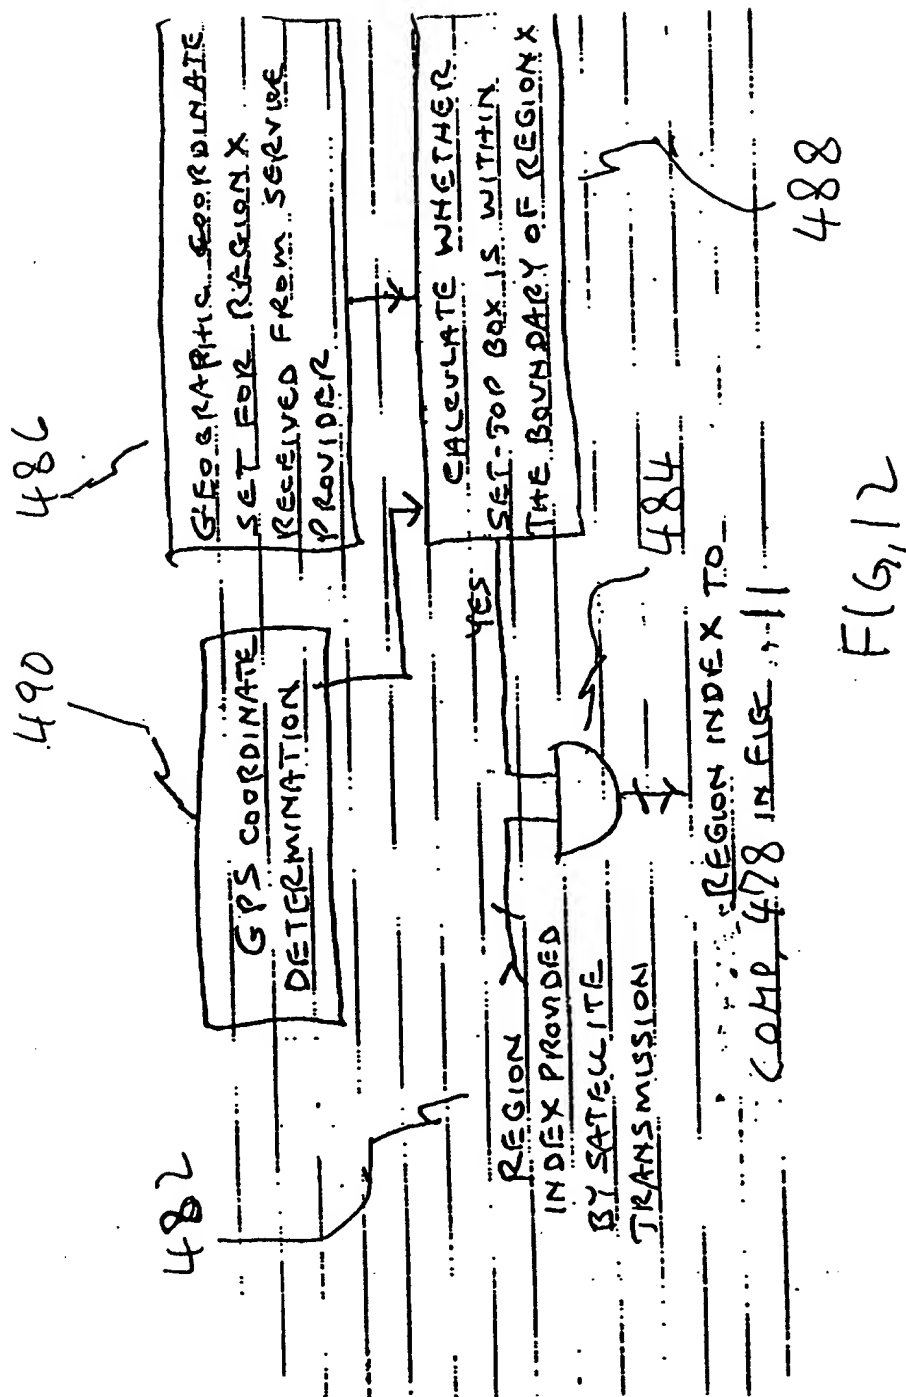 482
490
486
GPS COORDINATE
DETERMINATION
GEOGRAPHIC COORDINATE
SET FOR REGION X
RECEIVED FROM SERVICE
PROVIDER
CALCULATE WHETHER
SET-TOP BOX IS WITHIN
THE BOUNDARY OF REGION X
488
YES
REGION
INDEX PROVIDED
BY SATELLITE
TRANSMISSION
484
REGION INDEX TO
COMP. 478 IN FIG. 11
FIG, 12